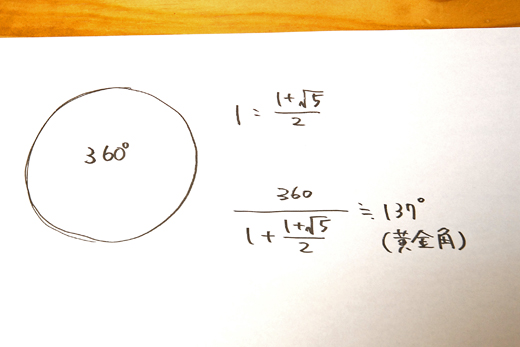 360°
1 : (1+√5)/2
360/(1 + (1+√5)/2) ≒ 137°
(黄金角)